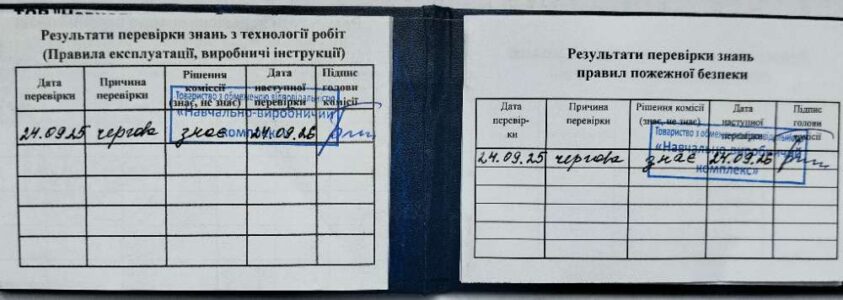 Результати перевірки знань з технології робіт
(Правила експлуатації, виробничі інструкції)
Дата перевірки
Причина перевірки
Рішення комісії (знає, не знає)
Дата наступної перевірки
Підпис голови комісії
24.09.25 чергова знає 24.09.26
Товариство з обмеженою відповідальністю
«Навчально-виробничий
комплекс»
Результати перевірки знань
правил пожежної безпеки
Дата перевір-
ки
Причина перевірки
Рішення комісії (знає, не знає)
Дата наступної перевірки
Підпис голови комісії
24.09.25 чергова знає 24.09.26
Товариство з обмеженою відповідальністю
«Навчально-виробничий
комплекс»